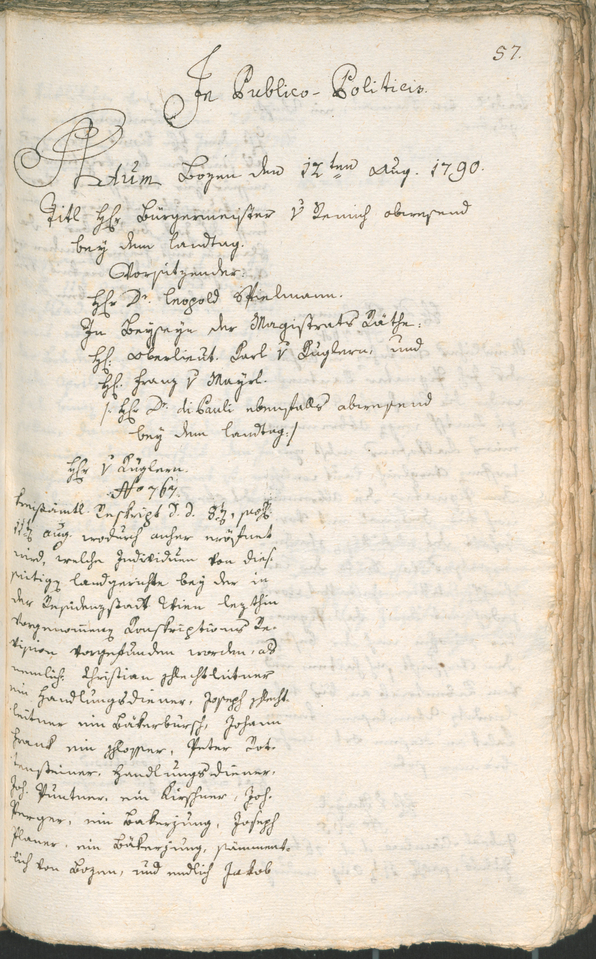 57.
In Publico-Politicis.
Actum Bozen den 12ten Aug. 1790.
Titl. Hr. Bürgermeister v Remich abwesend
bey dem Landtag.
Vorsitzender:
Hr Dr. Leopold Spielmann.
In Beyseyn der Magistrats Räthe:
H: Oberlieut. Karl v Kuglern, und
H: Franz v Mayrl.
/: Hr Dr. di Pauli ebenfalls abwesend
bey dem Landtag :/
Hr v Kuglern.
No 767.
Kreisämtl. Reskript d. d. 8t, 
11t Aug. wodurch anher eröfnet
wird, welche Individuen von dies-
seitige Landgerichte bey der in
der Residenzstadt Wien lezthin
vorgenommene Konskriptions Re-
vision vorgefunden worden, als
nemlich: Christian Schlechtleitner
ein Handlungsdiener, Joseph Schlecht-
leitner ein Bäkerbursch, Johann
Frank ein Schlosser, Peter Rot-
tensteiner, Handlungsdiener,
Joh. Puntner, ein Kirschner, Joh.
Perger, ein Bakerjung, Joseph
Planer, ein Bäkerjung, sämment-
lich von Bozen, und endlich Jakob